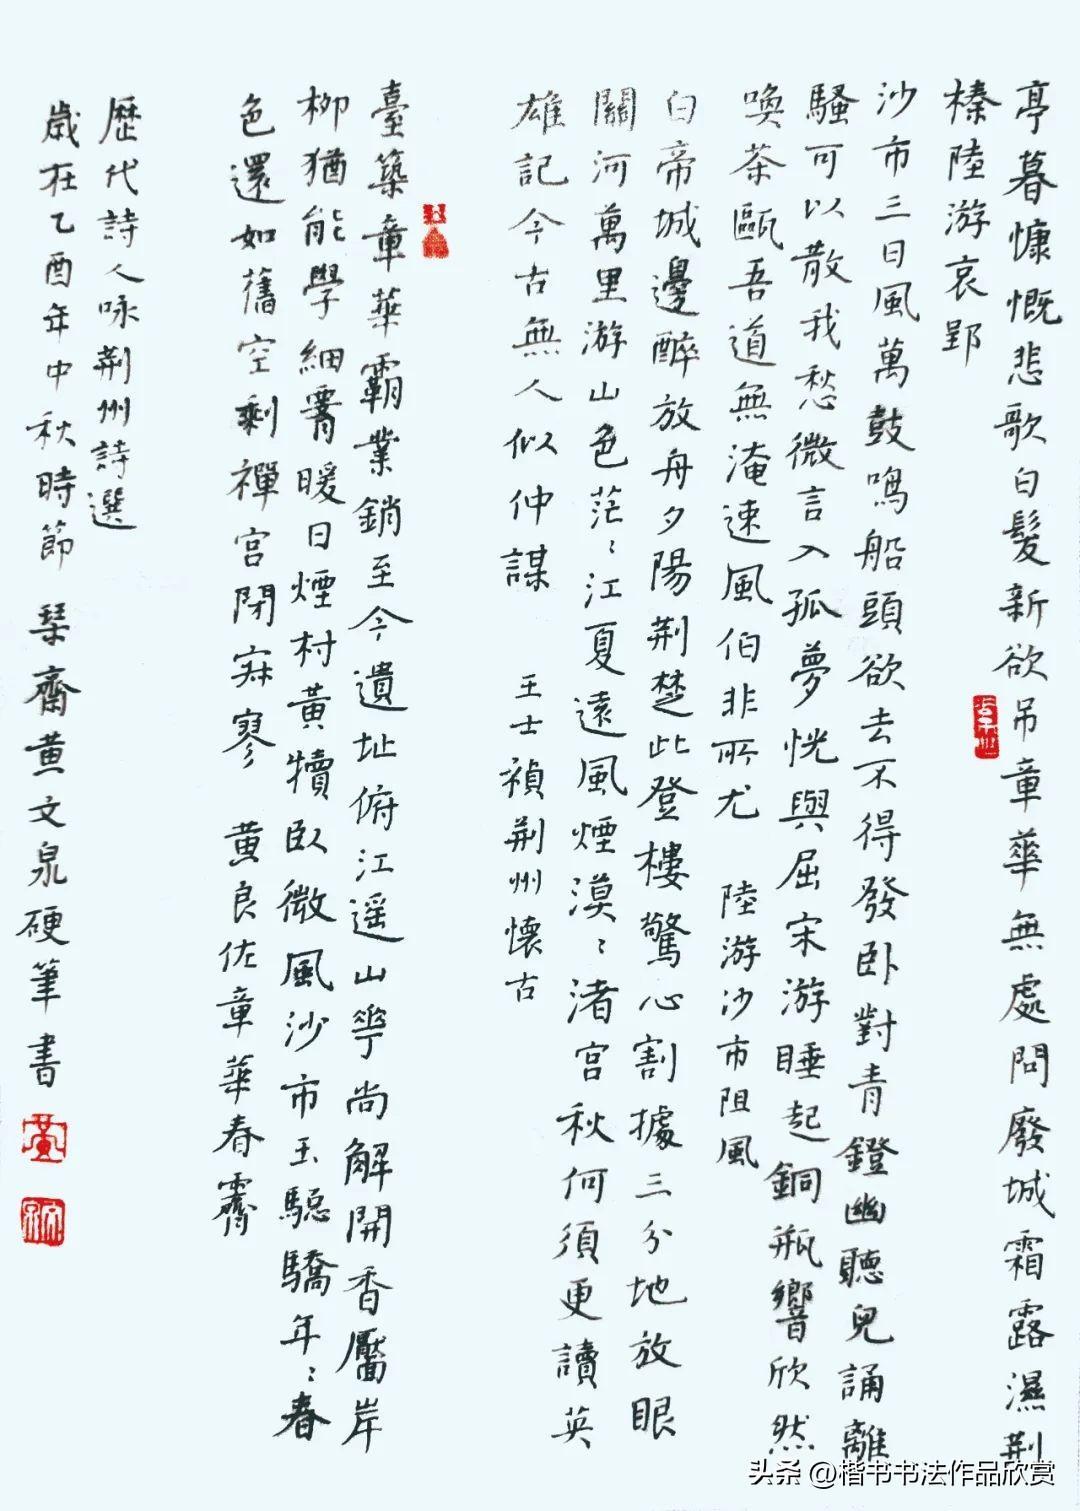 亭暮慷慨悲歌白髮新欲吊章華無處問廢城霜露濕荆
榛陸游哀郢
沙市三日風萬鼓鳴船頭欲去不得發卧對青鐙幽聽兒誦離
騷可以散我愁微言入孤夢恍與屈宋游睡起銅瓶響欣然
喚茶甌吾道無淹速風伯非所尤 陸游沙市阻風
白帝城邊醉放舟夕陽荆楚此登樓驚心割據三分地放眼
關河萬里游山色茫〻江夏遠風煙漠〻渚宫秋何須更讀英
雄記今古無人似仲謀 王士禎荆州懷古
臺築章華霸業銷至今遺址俯江遥山花尚解開香靨岸
柳猶能學細腰暖日煙村黄犢卧微風沙市玉驄驕年〻春
色還如舊空剩禪宫閉寂寥 黄良佐章華春霽
歷代詩人咏荆州詩選
歲在乙酉年中秋時節 琹齋黄文泉硬筆書
头条 @楷书书法作品欣赏